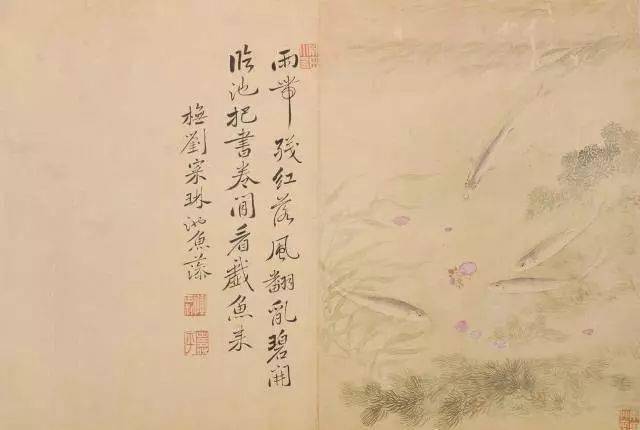 雨帶殘紅落風翻亂碧開
臨池把書卷閒看戲魚来
橅劉寀琳池魚藻